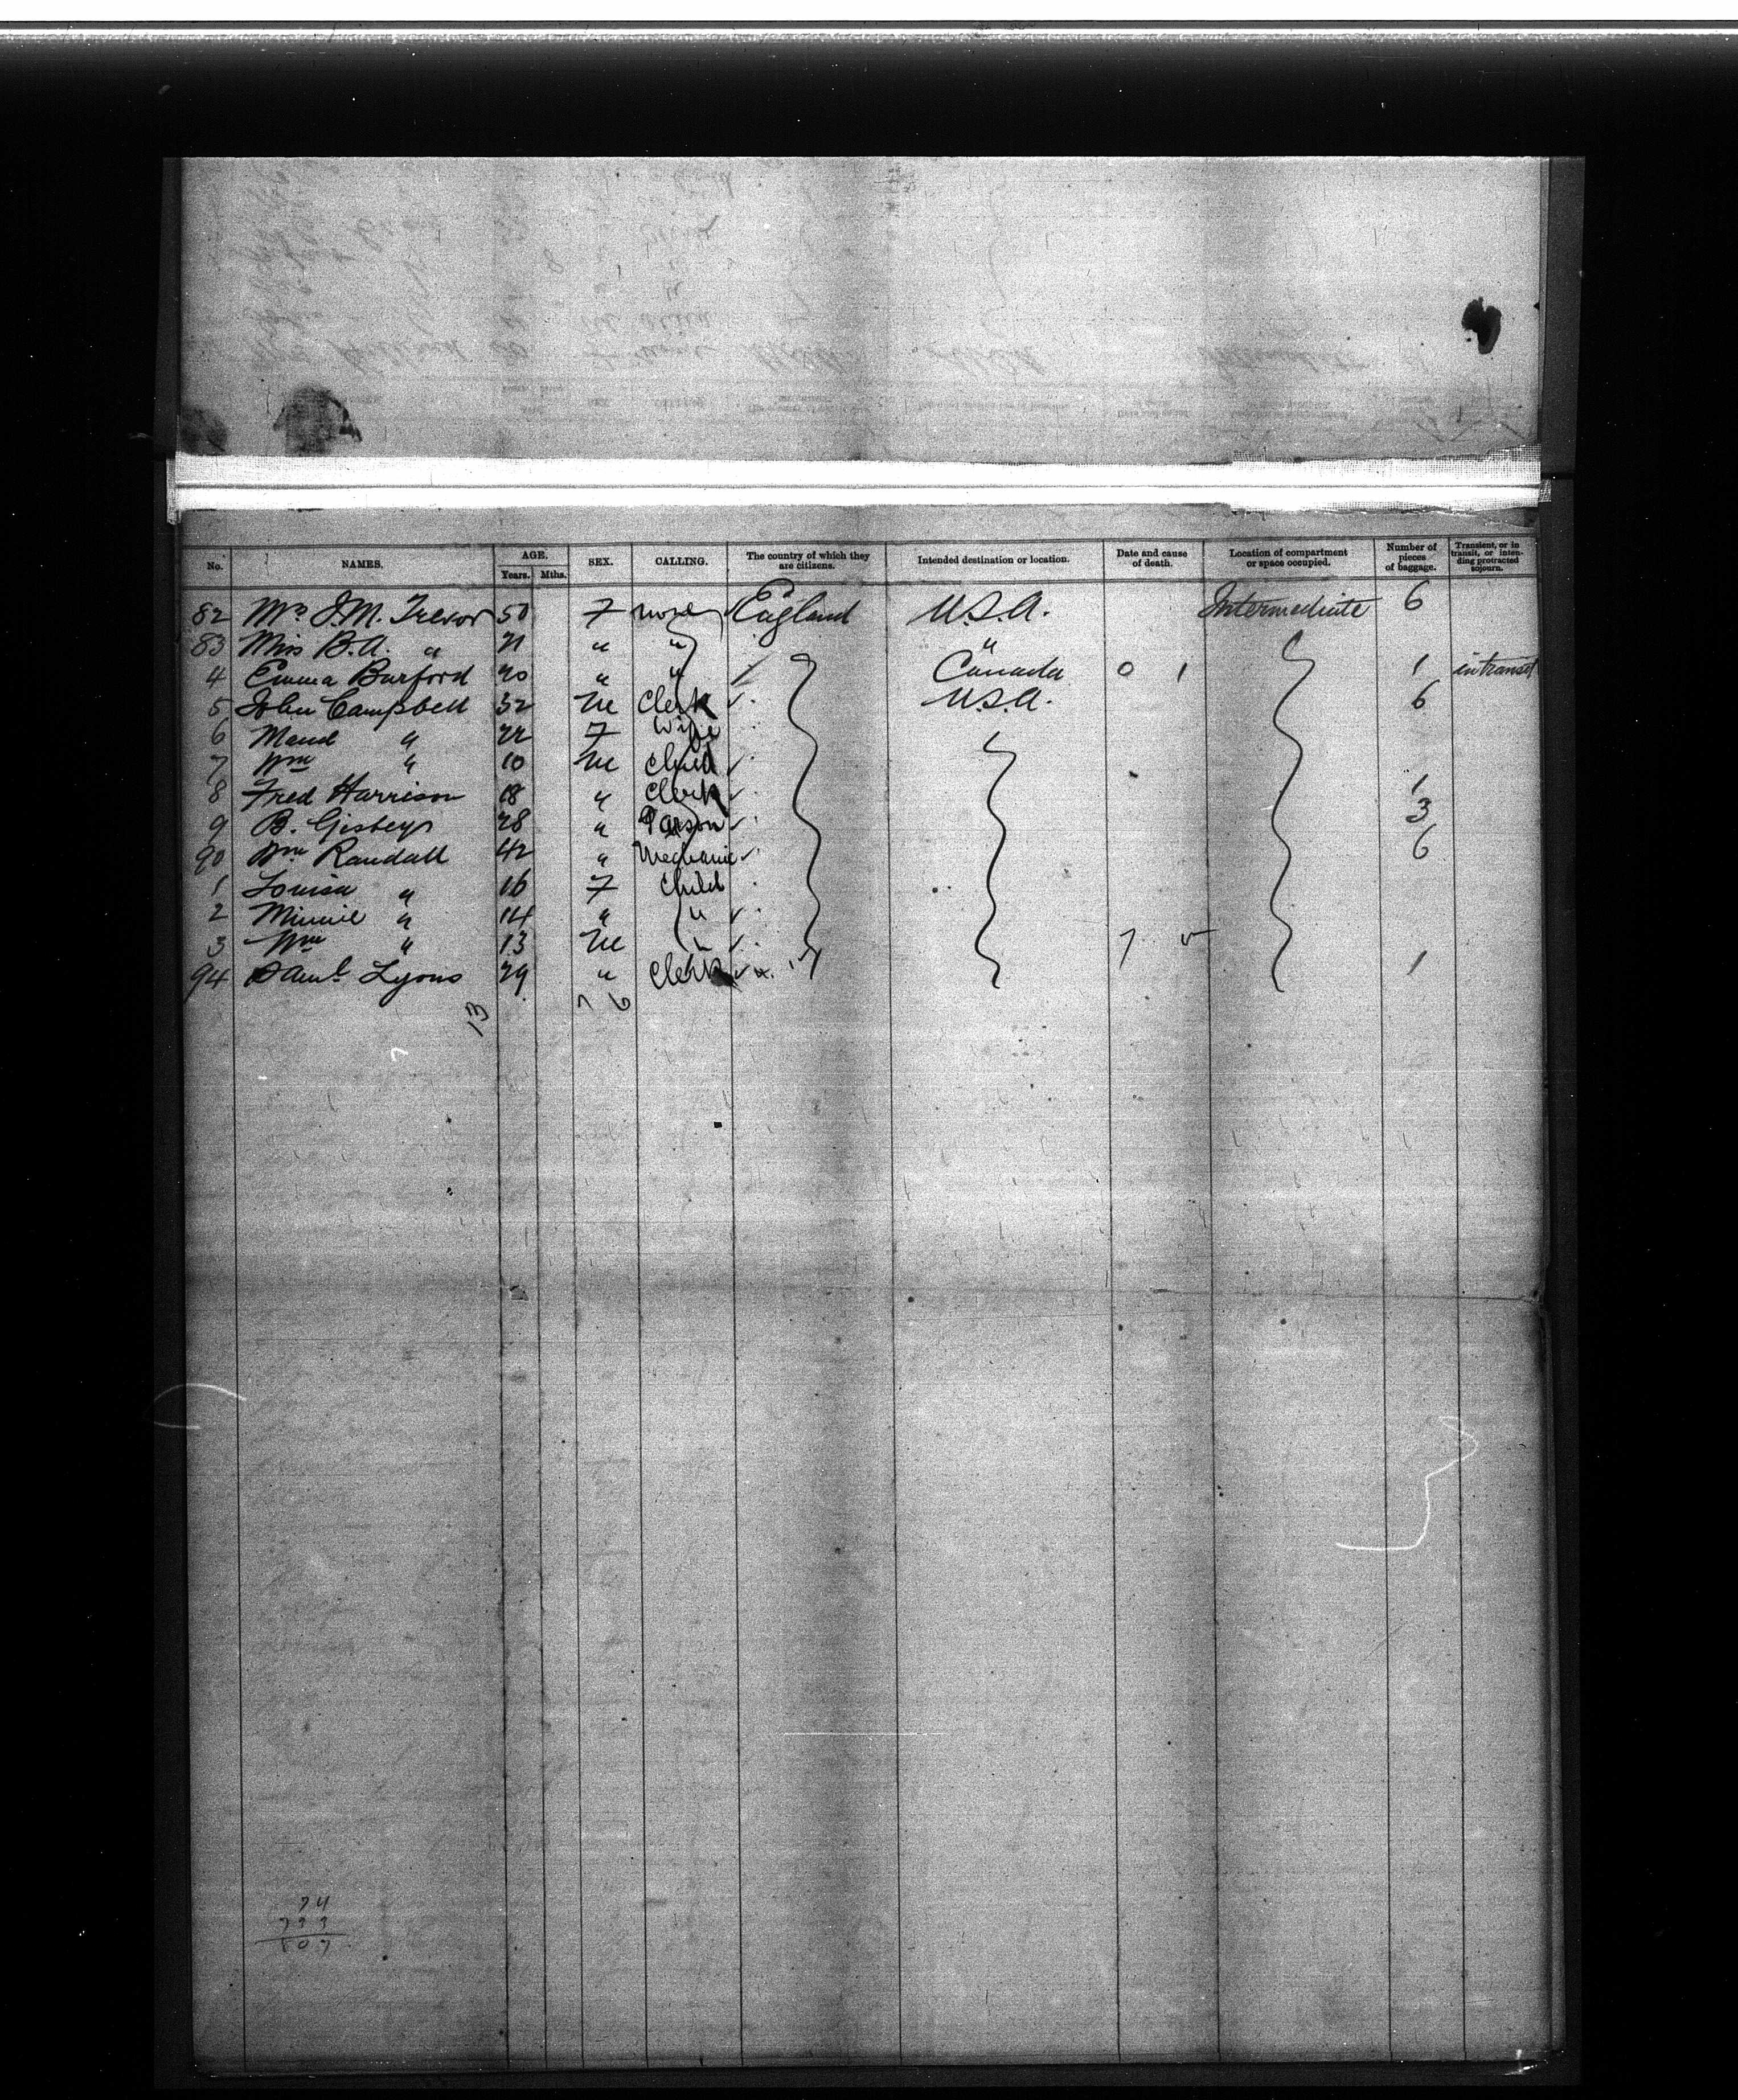 No. NAMES. AGE. Years. Mths. SEX. CALLING. The country of which they are citizens. Intended destination or location. Date and cause of death. Location of compartment or space occupied. Number of pieces of baggage. Transient, or in transit, or intending protracted sojourn.
82 Mrs J.M. Trevor 50 F none England U.S.A. Intermediate 6
83 Miss B.A. " 21 " " "
4 Emma Burford 20 " " Canada 0 1 1 in transit
5 John Campbell 32 M Clerk U.S.A. 6
6 Maud " 22 F Wife
7 Wm " 10 M Child
8 Fred Harrison 18 " Clerk 1
9 B. Gisbey 28 " Parson 3
90 Wm Randall 42 " Mechanic 6
1 Louisa " 16 F Child
2 Minnie " 14 " "
3 Wm " 13 M " 7 5
94 Saml Lyons 29 " Clerk 1
13 7 6
74
733
807